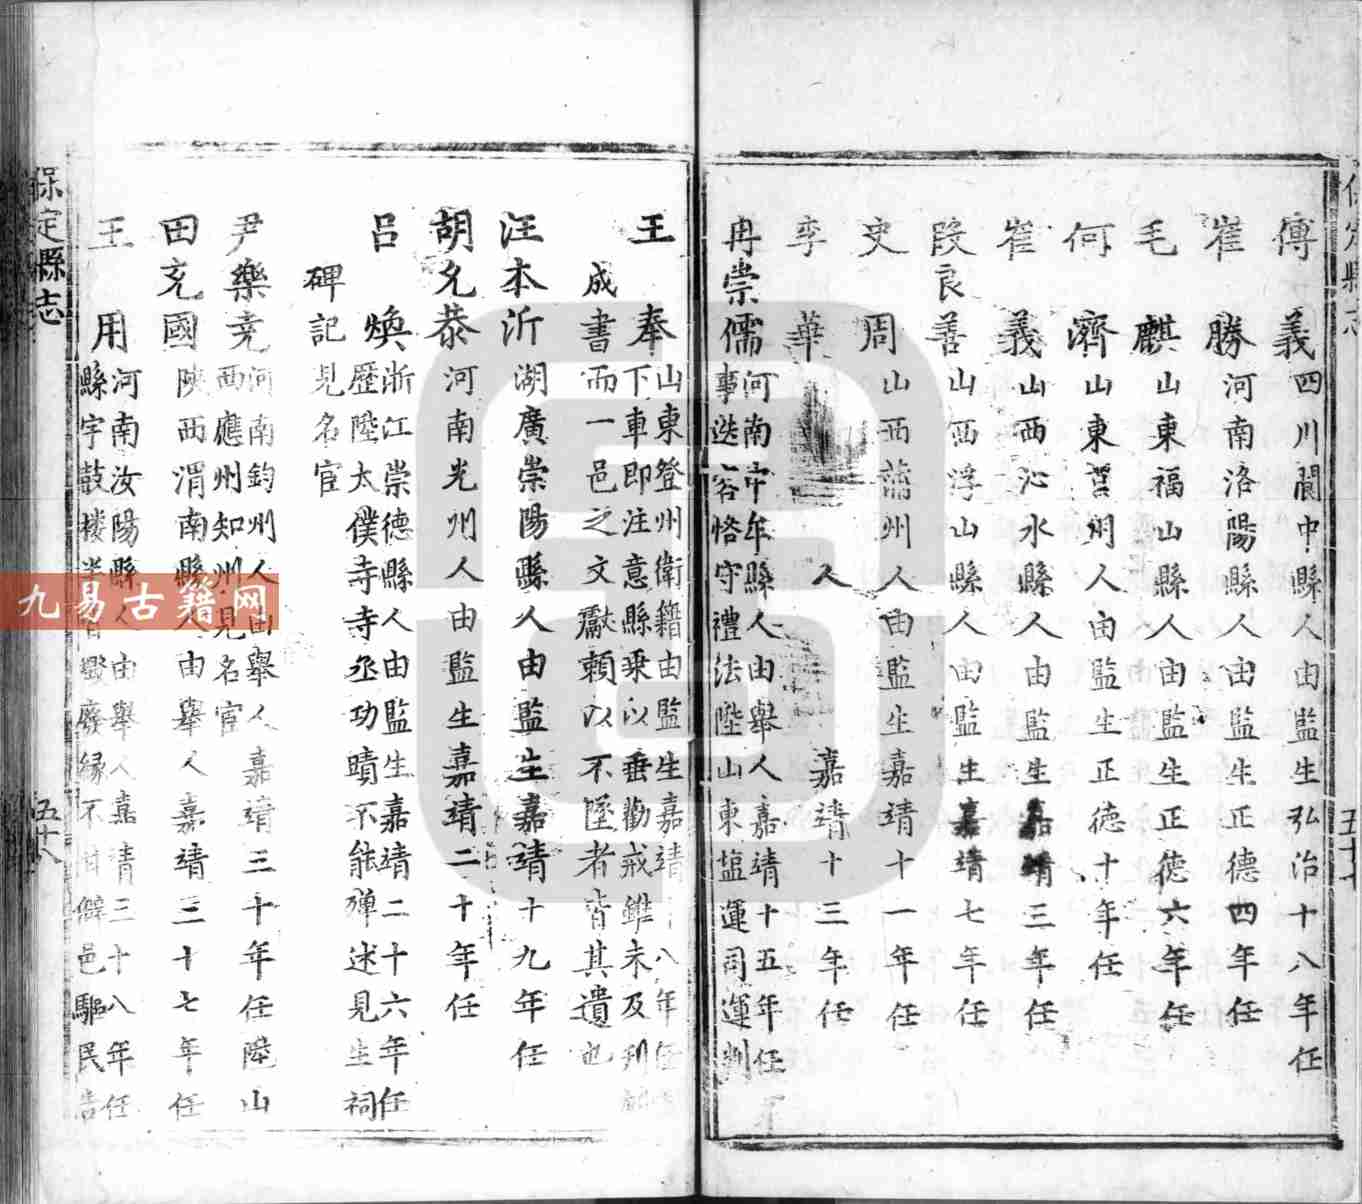 保定縣志
傅義四川閬中縣人由監生弘治十八年任
崔勝河南洛陽縣人由監生正德四年任
毛麒山東福山縣人由監生正德六年任
何濟山東莒州人由監生正德十年任
崔義山西沁水縣人由監生嘉靖三年任
段良善山西浮山縣人由監生嘉靖七年任
史周山西蔚州人由監生嘉靖十一年任
李華人嘉靖十三年任
冉崇儒河南中牟縣人由舉人嘉靖十五年任
事迭容恪守禮法陞山東塩運司運判
王奉山東登州衛籍由監生嘉靖十八年任
下車即注意縣乘以垂勸戒雖未及刋
成書而一邑之文獻頼以不墜者皆其遺也
汪本沂湖廣崇陽縣人由監生嘉靖十九年任
胡允恭河南光州人由監生嘉靖二十年任
吕煥浙江崇德縣人由監生嘉靖二十六年任
歷陞太僕寺寺丞功蹟不能殫述見生祠
碑記見名宦
尹樂尭河南鈞州人由舉人嘉靖三十年任陞山
西應州知州見名宦
田充國陝西渭南縣人由舉人嘉靖三十七年任
王用河南汝陽縣人由舉人嘉靖三十八年任
縣宇鼓楼廢緣不甘僻邑驅民告
保定縣志
五十八
九易古籍网